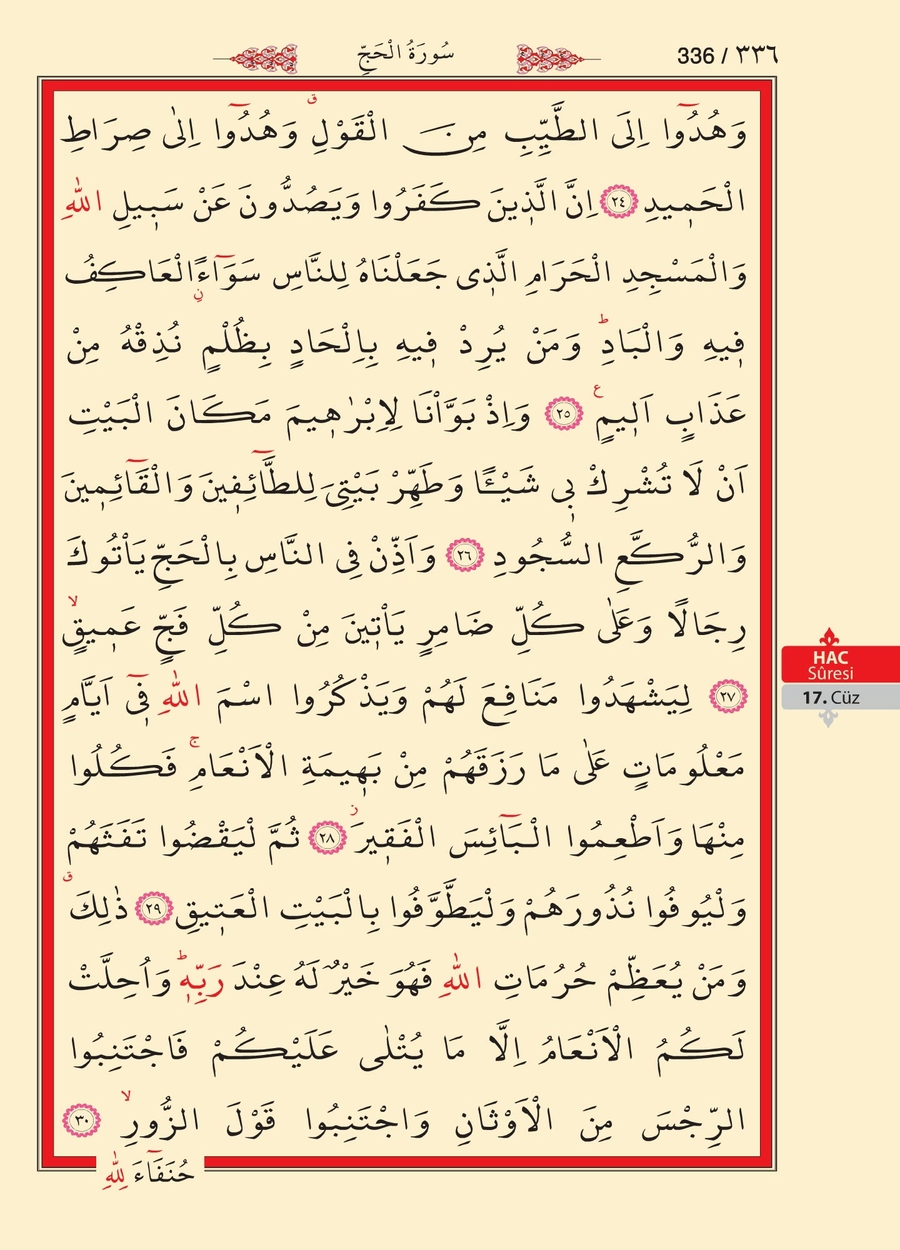 336 / ٣٣٦
سُورَةُ الْحَجِّ
وَهُدُٓوا اِلَى الطَّيِّبِ مِنَ الْقَوْلِۗ وَهُدُٓوا اِلٰى صِرَاطِ
الْحَم۪يدِ ﴿٢٤﴾ اِنَّ الَّذ۪ينَ كَفَرُوا وَيَصُدُّونَ عَنْ سَب۪يلِ اللّٰهِ
وَالْمَسْجِدِ الْحَرَامِ الَّذ۪ى جَعَلْنَاهُ لِلنَّاسِ سَوَٓاءًۨ الْعَاكِفُ
ف۪يهِ وَالْبَادِۜ وَمَنْ يُرِدْ ف۪يهِ بِاِلْحَادٍ بِظُلْمٍ نُذِقْهُ مِنْ
عَذَابٍ اَل۪يمٍۚ ع ﴿٢٥﴾ وَاِذْ بَوَّاْنَا لِاِبْرٰه۪يمَ مَكَانَ الْبَيْتِ
اَنْ لَا تُشْرِكْ ب۪ى شَيْـًٔا وَطَهِّرْ بَيْتِىَ لِلطَّٓائِف۪ينَ وَالْقَٓائِم۪ينَ
وَالرُّكَّعِ السُّجُودِ ﴿٢٦﴾ وَاَذِّنْ فِى النَّاسِ بِالْحَجِّ يَأْتُوكَ
رِجَالًا وَعَلٰى كُلِّ ضَامِرٍ يَأْت۪ينَ مِنْ كُلِّ فَجٍّ عَم۪يقٍۙ
﴿٢٧﴾ لِيَشْهَدُوا مَنَافِعَ لَهُمْ وَيَذْكُرُوا اسْمَ اللّٰهِ ف۪ٓى اَيَّامٍ
مَعْلُومَاتٍ عَلٰى مَا رَزَقَهُمْ مِنْ بَه۪يمَةِ الْاَنْعَامِۚ فَكُلُوا
مِنْهَا وَاَطْعِمُوا الْبَٓائِسَ الْفَق۪يرَۘ ﴿٢٨﴾ ثُمَّ لْيَقْضُوا تَفَثَهُمْ
وَلْيُوفُوا نُذُورَهُمْ وَلْيَطَّوَّفُوا بِالْبَيْتِ الْعَت۪يقِ ﴿٢٩﴾ ذٰلِكَۗ
وَمَنْ يُعَظِّمْ حُرُمَاتِ اللّٰهِ فَهُوَ خَيْرٌ لَهُ عِنْدَ رَبِّه۪ۜ وَاُحِلَّتْ
لَكُمُ الْاَنْعَامُ اِلَّا مَا يُتْلٰى عَلَيْكُمْ فَاجْتَنِبُوا
الرِّجْسَ مِنَ الْاَوْثَانِ وَاجْتَنِبُوا قَوْلَ الزُّورِۙ ﴿٣٠﴾
حُنَفَٓاءَ لِلّٰهِ
HAC
Sûresi
17. Cüz